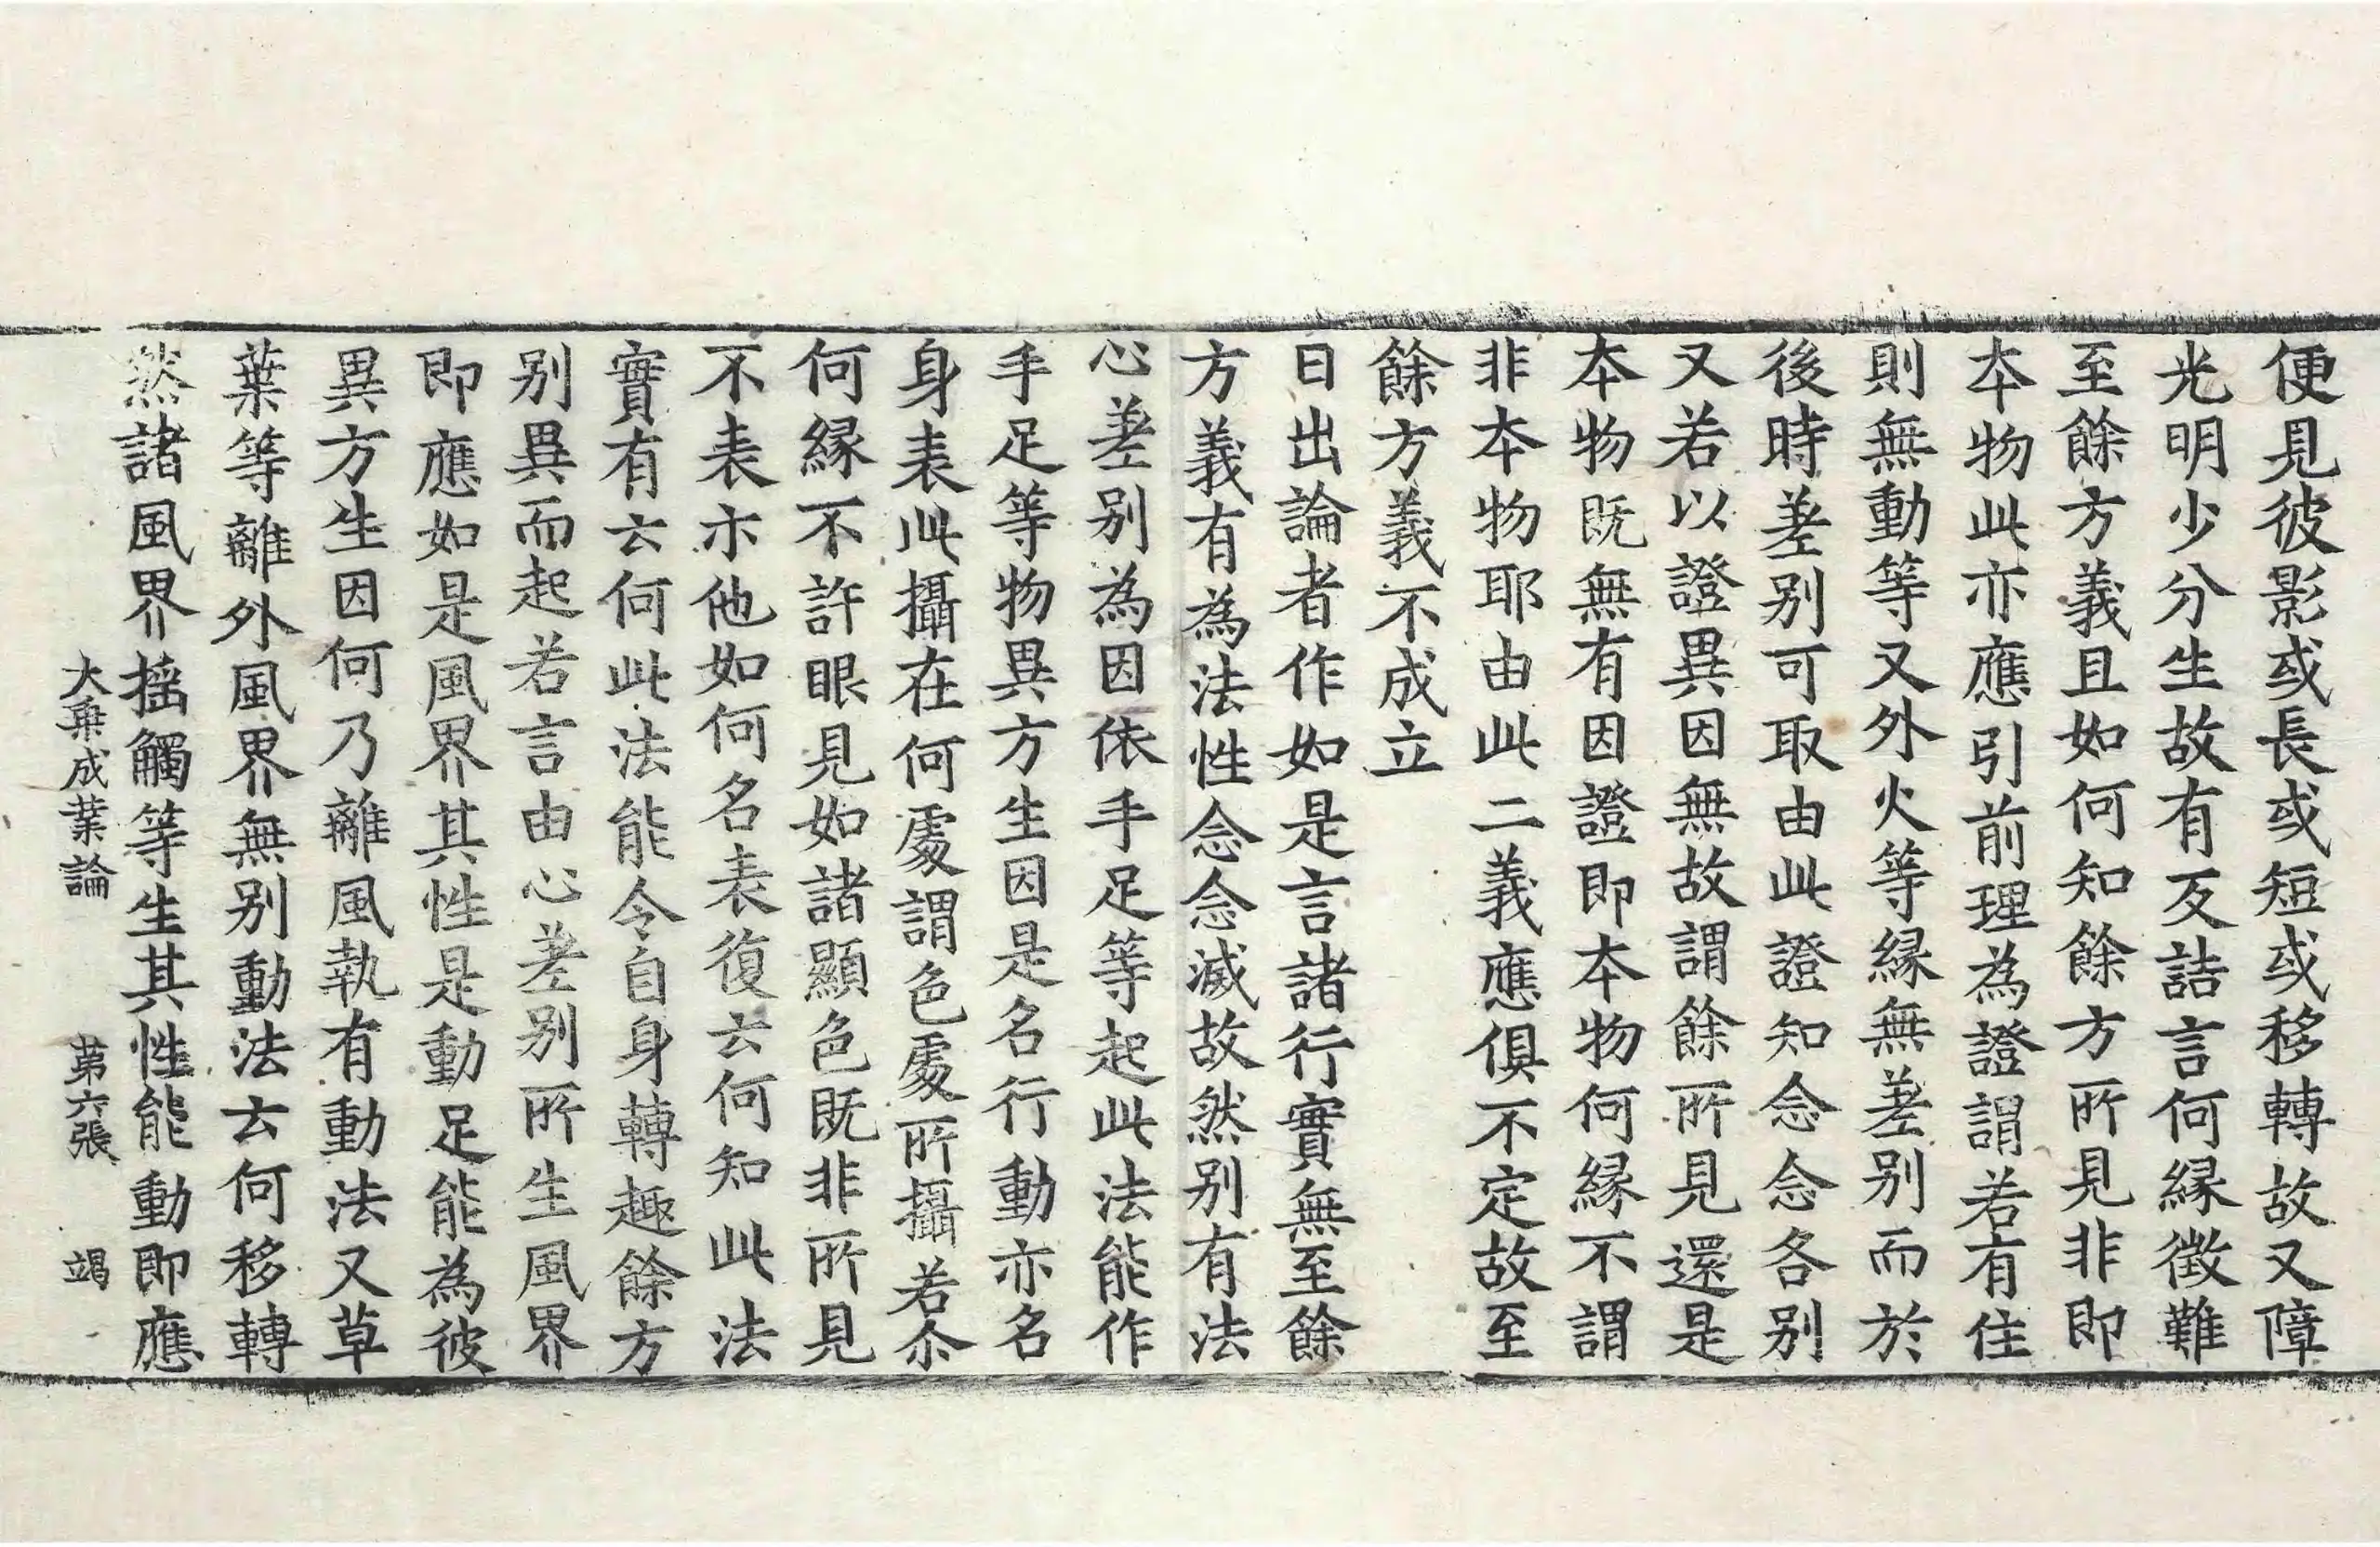 便見彼影或長或短或移轉故又障
光明少分生故有反詰言何緣徵難
至餘方義且如何知餘方所見非即
本物此亦應引前理為證謂若有住
則無動等又外火等緣無差别而於
後時差别可取由此證知念念各别
又若以證異因無故謂餘所見還是
本物既無有因證即本物何緣不謂
非本物耶由此二義應俱不定故至
餘方義不成立
日出論者作如是言諸行實無至餘
方義有為法性念念滅故然别有法
心差别為因依手足等起此法能作
手足等物異方生因是名行動亦名
身表此攝在何處謂色處所攝若尒
何緣不許眼見如諸顯色既非所見
不表示他如何名表復云何知此法
實有云何此法能令自身轉趣餘方
别異而起若言由心差别所生風界
即應如是風界其性是動足能為彼
異方生因何乃離風執有動法又草
葉等離外風界無别動法云何移轉
然諸風界摇觸等生其性能動即應
大乗成業論 第六張 竭